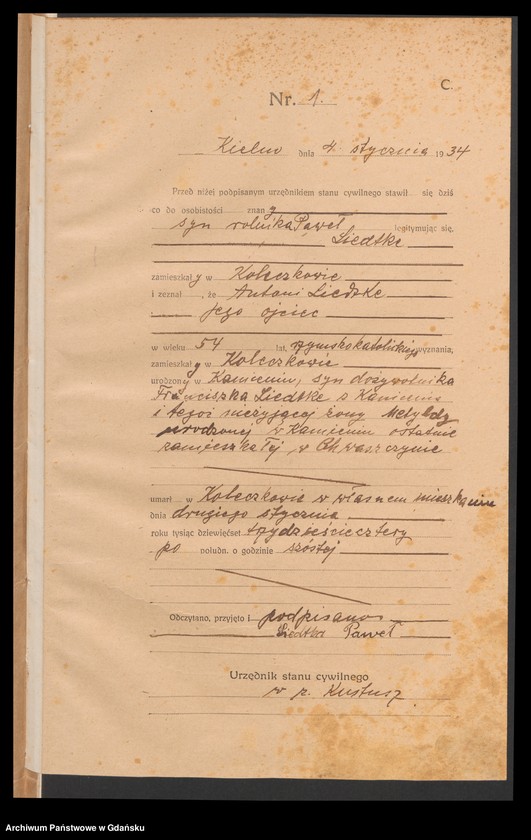 C.
Nr. 1.
Kielno dnia 4. stycznia 1934
Przed niżej podpisanym urzędnikiem stanu cywilnego stawił się dziś
co do osobistości znany
syn rolnika Paweł legitymując się,
Liedtke
zamieszkały w Koleczkowie
i zeznał, że Antoni Liedtke
jego ojciec
w wieku 54 lat, rzymskokatolickiego wyznania,
zamieszkały w Koleczkowie
urodzony w Kamieniu, syn dożywotnika
Franciszka Liedtke z Kamienia
i tegoż nieżyjącej żony Metyldy
urodzonej w Kamieniu ostatnie
zamieszkałej w Chwaszczynie
umarł w Koleczkowie w własnem mieszkaniu
dnia drugiego stycznia
roku tysiąc dziewięćset trzydzieściecztery
po połudn. o godzinie szóstej
Odczytano, przyjęto i podpisano
Liedtka Paweł
Urzędnik stanu cywilnego
w z. Kustusz
Archiwum Państwowe w Gdańsku